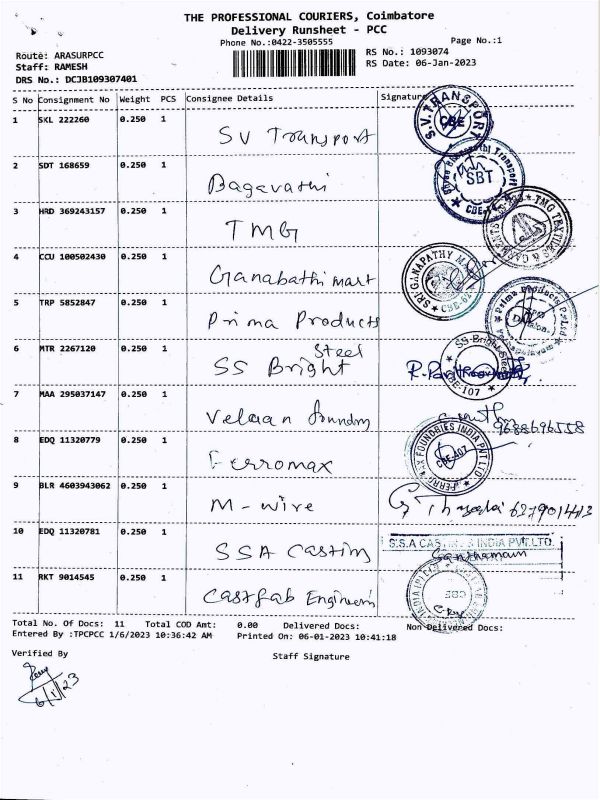 THE PROFESSIONAL COURIERS, Coimbatore
Delivery Runsheet - PCC
Phone No.:0422-3505555 Page No.:1
Route: ARASURPCC RS No.: 1093074
Staff: RAMESH RS Date: 06-Jan-2023
DRS No.: DCJB109307401
S No Consignment No Weight PCS Consignee Details Signature
1 SKL 222260 0.250 1 SV Transport S.V. TRANSPORT CBE
2 SDT 168659 0.250 1 Bagavathi SBT
3 HRD 369243157 0.250 1 TMG
4 CCU 100502430 0.250 1 Ganabathi mart SRI GANAPATHY
5 TRP 5852847 0.250 1 Prima Products Prima Products Pvt Ltd
6 MTR 2267120 0.250 1 SS Bright Steel SS Bright Steel CBE-107
7 MAA 295037147 0.250 1 Velaan foundry 9688696558
8 EDQ 11320779 0.250 1 Ferromax FOUNDRIES INDIA PVT LTD CBE-407
9 BLR 4603943062 0.250 1 M-wire
10 EDQ 11320781 0.250 1 SSA Casting S.S.A CASTINGS INDIA PVT.LTD.
11 RKT 9014545 0.250 1 Castfab Engineers CBE
Total No. Of Docs: 11 Total COD Amt: 0.00 Delivered Docs: Non Delivered Docs:
Entered By :TPCPCC 1/6/2023 10:36:42 AM Printed On: 06-01-2023 10:41:18
Verified By Staff Signature
6/1/23